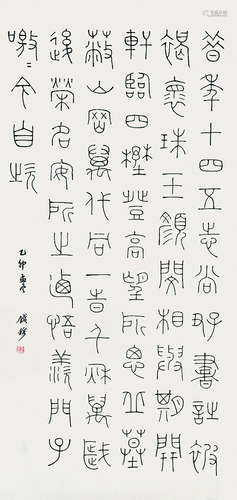 昔年十四五志尚好書詩被
褐懷珠玉顏閔相與期開
軒臨四野登高望所思丘墓
蔽山岡萬代同一時千秋萬歲
後榮名安所之迺悟羨門子
噭〻今自嗤
乙卯孟冬